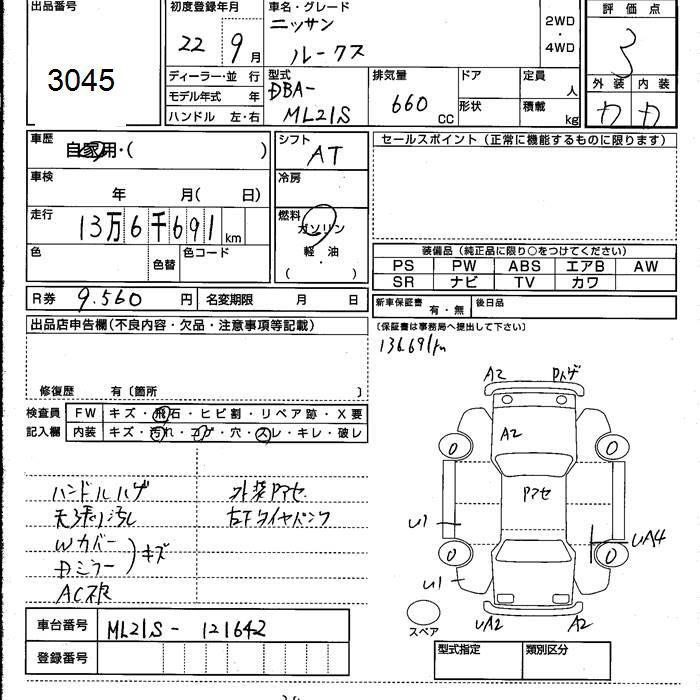 出品番号
3045
初度登録年月
22年9月
車名・グレード
ニッサン
ルークス
2WD
・
4WD
評価点
3
外装 内装
カ カ
ディーラー・並行
モデル年式 年
ハンドル 左・右
型式
DBA-
ML21S
排気量
660 CC
ドア
形状
定員 人
積載 kg
車歴
自家用・( )
車検
年 月( 日)
走行
13万6千691 km
色
色替
色コード
シフト
AT
冷房
燃料
ガソリン
軽・油
・
( )
セールスポイント(正常に機能するものに限ります)
装備品(純正品に限り○をつけてください)
PS PW ABS エアB AW
SR ナビ TV カワ
R券 9.560 円 名変期限 月 日
新車保証書 有・無 後日品
〔保証書は事務局へ提出して下さい〕
136.691km
出品店申告欄(不良内容・欠品・注意事項等記載)
修復歴 有〔箇所 〕
検査員 FW キズ・飛石・ヒビ割・リペア跡・X要
記入欄 内装 キズ・汚れ・コゲ・穴・スレ・キレ・破レ
ハンドルハゲ
天張り汚れ
Wカバー
Dミラー
キズ
AC不良
外装Pアセ
右Fタイヤパンク
A2 Pハゲ
A2
0 0
Pアセ
U1
UA4
0 0
U1
UA2 A2
スペア
車台番号 ML21S-121642
登録番号
型式指定 類別区分